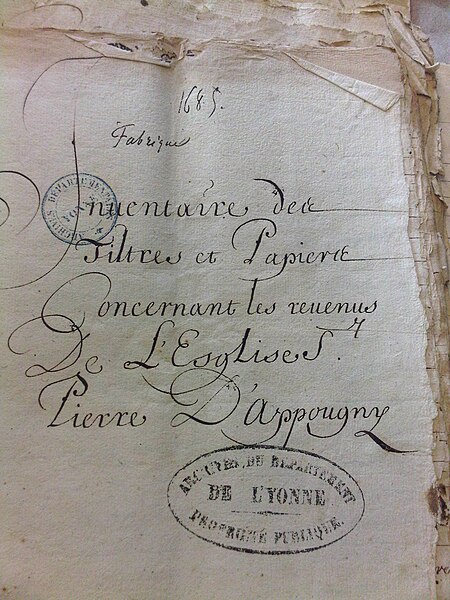 1685.
Fabrique
Inuentaire des
Tiltres et Papiers
Concernant les reuenus
De L'Esglise S.t
Pierre D'Appougny
ARCHIVES DU DEPARTEMENT
DE L'YONNE
PROPRIÉTÉ PUBLIQUE.